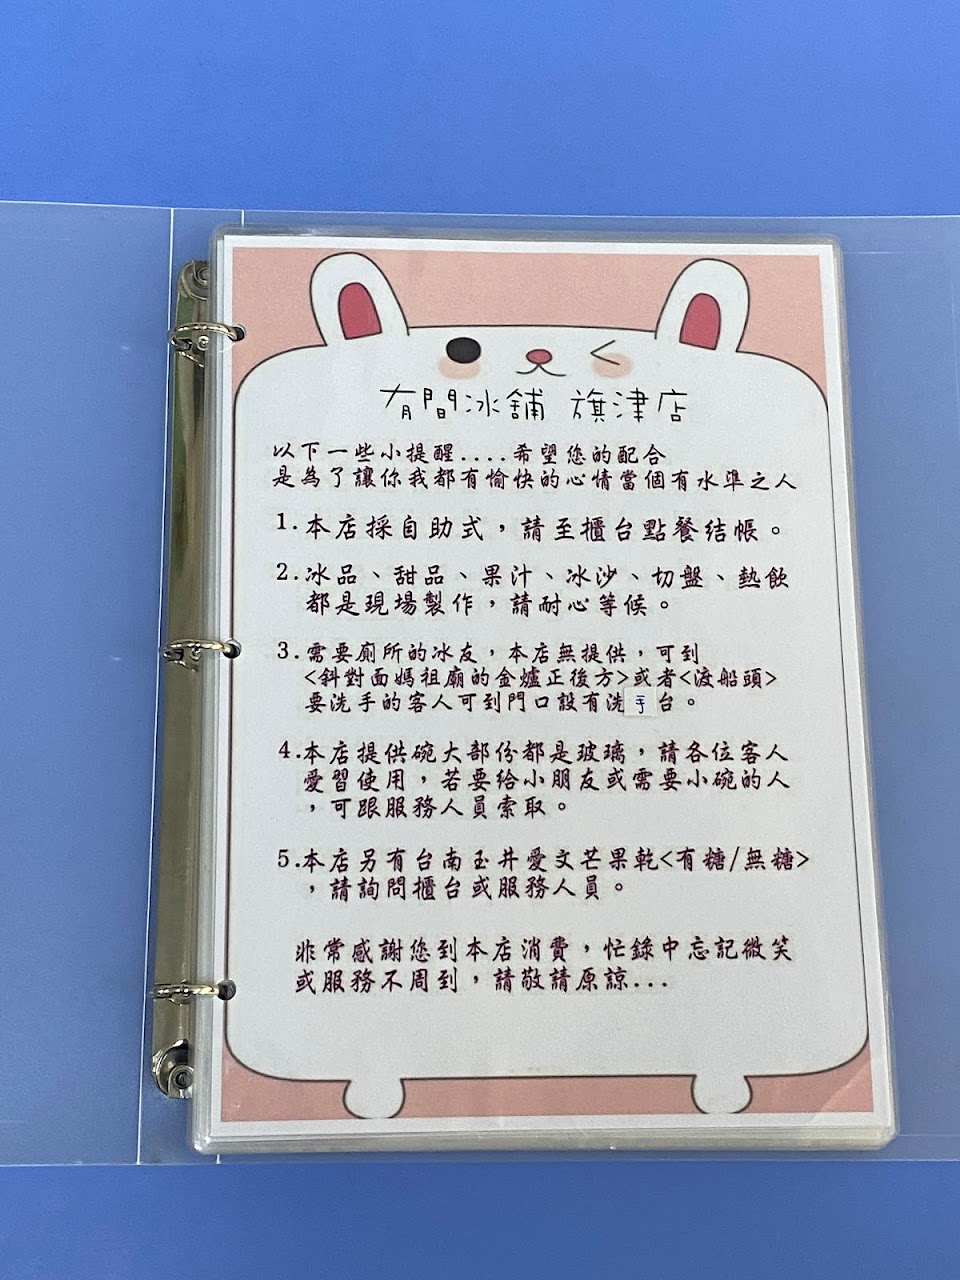 有間冰舖 旗津店
以下一些小提醒....希望您的配合
是為了讓你我都有愉快的心情當個有水準之人
1.本店採自助式，請至櫃台點餐結帳。
2.冰品、甜品、果汁、冰沙、切盤、熱飲
都是現場製作，請耐心等候。
3.需要廁所的冰友，本店無提供，可到
<斜對面媽祖廟的金爐正後方>或者<渡船頭>
要洗手的客人可到門口設有洗手台。
4.本店提供碗大部份都是玻璃，請各位客人
愛習使用，若要給小朋友或需要小碗的人
，可跟服務人員索取。
5.本店另有台南玉井愛文芒果乾<有糖/無糖>
，請詢問櫃台或服務人員。
非常感謝您到本店消費，忙錄中忘記微笑
或服務不周到，請敬請原諒...